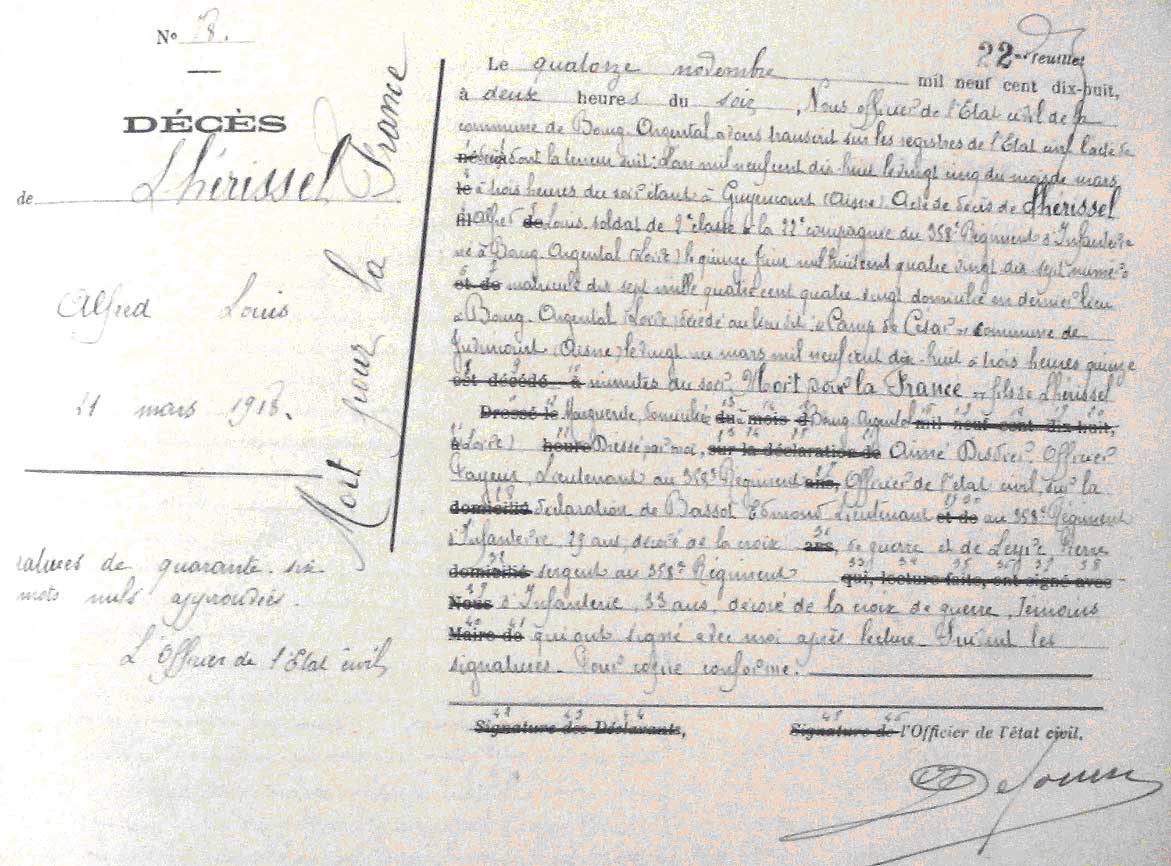 N° 78.
DÉCÈS
de Lhérissel
Alfred Louis
21 mars 1918.
Mort pour la France
ratures de quarante six
mots nuls approuvées.
L'Officier de l'Etat civil,
22me feuillet
Le quatorze novembre mil neuf cent dix-huit,
à deux heures du soir, Nous officier de l'Etat civil de la
commune de Bourg-Argental avons transcrit sur les registres de l'Etat civil l'acte de
décès dont la teneur suit: L'an mil neuf cent dix-huit le vingt cinq du mois de mars
le à trois heures du soir étant à Guyencourt (Aisne) Acte de décès de Lhérissel
Alfred de Louis soldat de 2e classe à la 22e compagnie du 358e Régiment d'Infanterie
né à Bourg-Argental (Loire) le quinze mil huit cent quatre vingt dix sept numéro
et de matricule dix sept mille quatre cent quatre vingt domicilié en dernier lieu
à Bourg-Argental (Loire) décédé au lieu dit "Camp de César" commune de
Juvincourt (Aisne) le vingt un mars mil neuf cent dix-huit à trois heures quinze
est décédé à minutes du soir, Mort pour la France, fils de Lhérissel
Dressé le Marguerite, domiciliée du mois d Bourg-Argental mil neuf cent dix-huit,
à (Loire) heure Dressé par moi, sur la déclaration de Aimé Officier
Payeur, Lieutenant au 358e Régiment ans, Officier de l'état civil, sur la
domicilié déclaration de Bassot Edmond Lieutenant et de au 358e Régiment
d'Infanterie, 29 ans, décoré de la croix ans, de guerre et de Pierre
domicilié sergent au 358e Régiment qui, lecture faite, ont signé avec
Nous d'Infanterie, 33 ans, décoré de la croix de guerre, Témoins
Maire de qui ont signé avec moi après lecture. Suivent les
signatures. Pour copie conforme.
Signature des Déclarants, Signature de l'Officier de l'état civil.